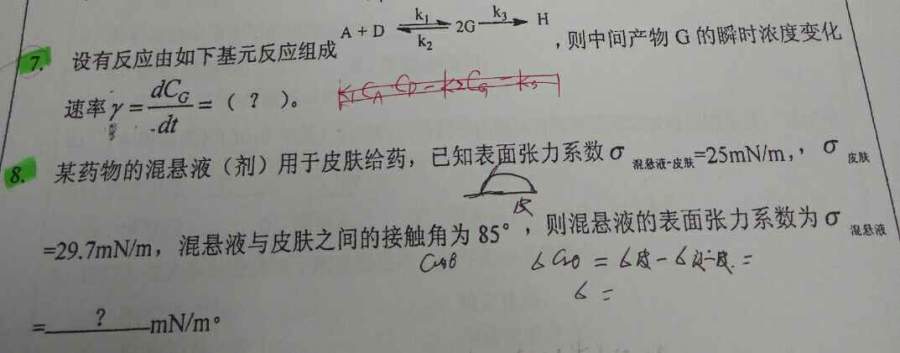 7. 设有反应由如下基元反应组成 A + D ⇌ 2G → H ,则中间产物 G 的瞬时浓度变化
k₁ k₂ k₃
速率 γ = dC_G/dt = ( ? )。 K₁C_A C_D - k₂C_G - k₃
8. 某药物的混悬液(剂)用于皮肤给药,已知表面张力系数 σ 混悬液-皮肤=25mN/m,,σ 皮肤
皮
=29.7mN/m,混悬液与皮肤之间的接触角为 85°,则混悬液的表面张力系数为 σ 混悬液
Cosθ
=
= ? mN/m。